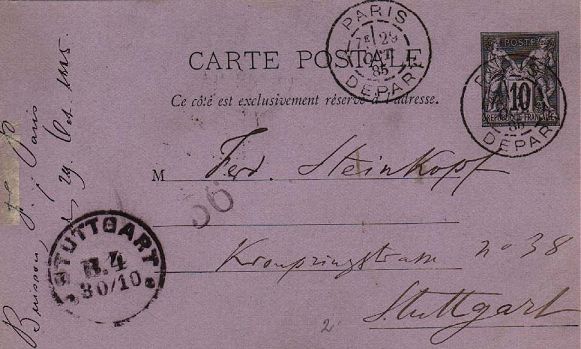 PARIS
7E 29
OCT
85
DEPART
CARTE POSTALE
Ce côté est exclusivement réservé à l'adresse.
POSTES
10
REPUBLIQUE FRANÇAISE
DEPART
85
M Ferd. Steinkopf
56
Kronprinzstrasse no 38
Stuttgart
STUTTGART
N.4
30/10
2
Buisson, Paris
29 Oct. 1885